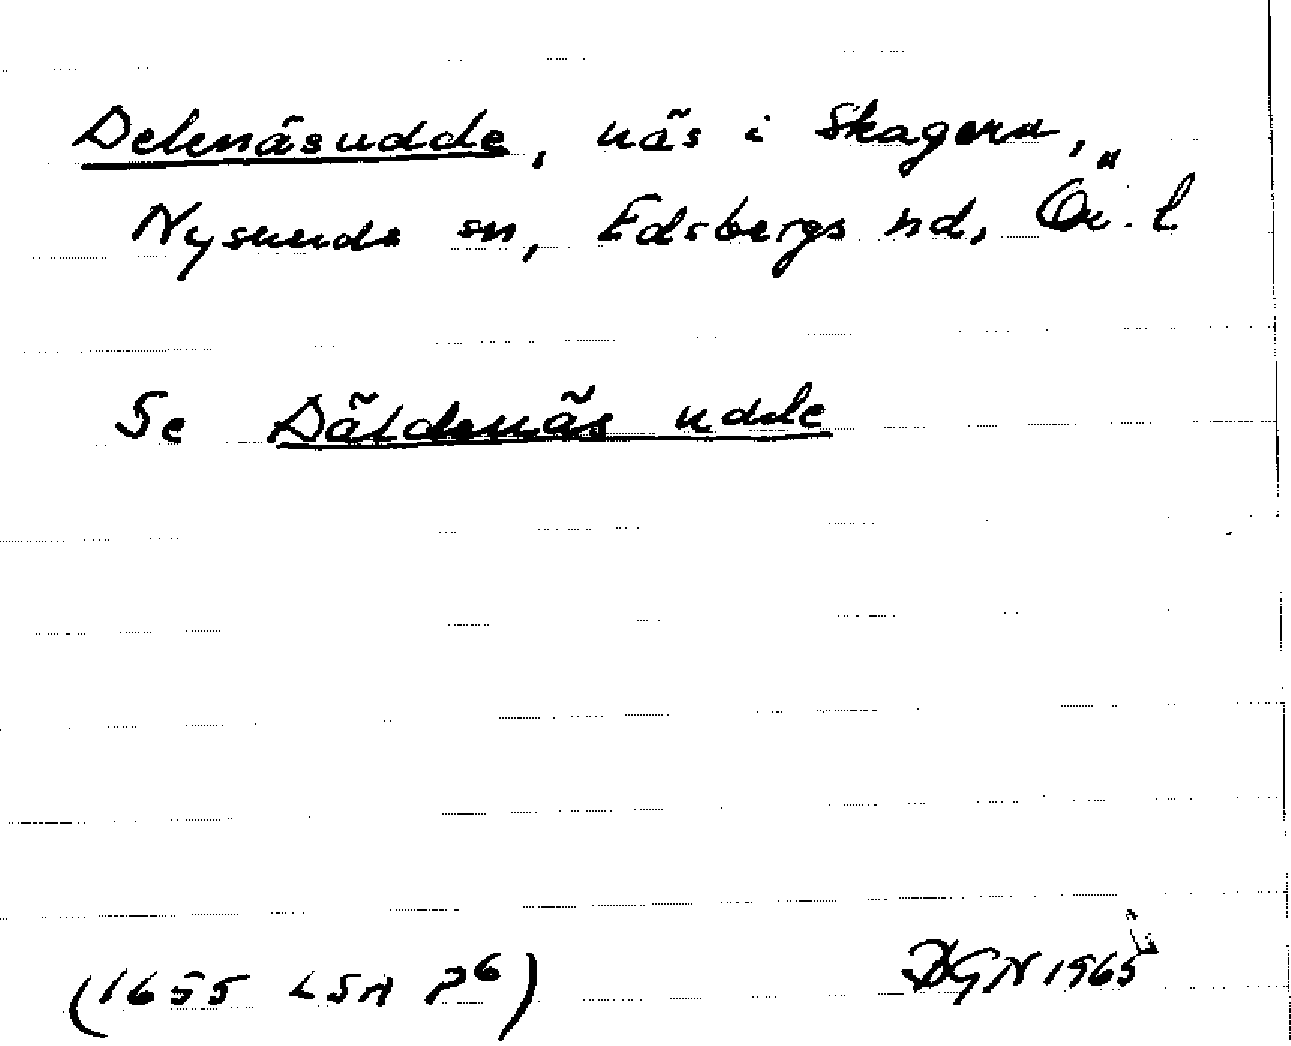 Delenäsudde, näs i Skagern,
Nysunds sn, Edsbergs hd, Ör. l
Se Däldenäs udde
(1655 LSA P6) DGN 1965